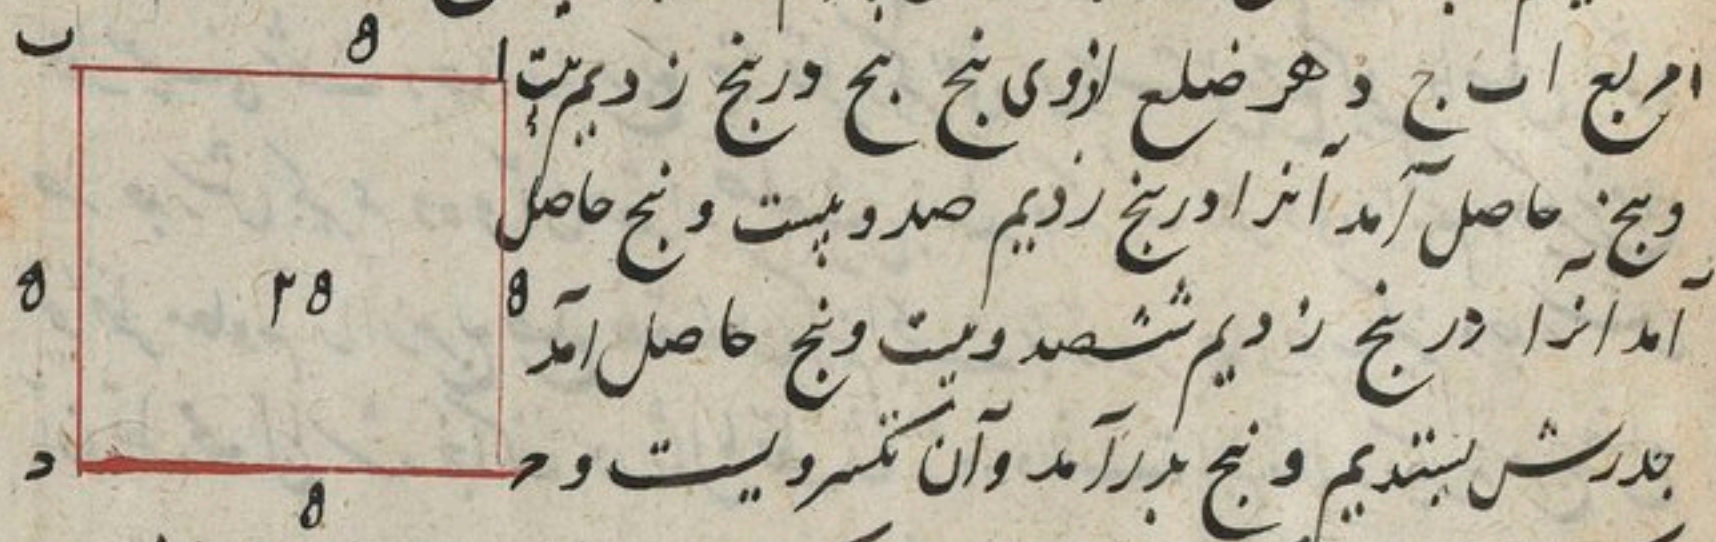 ب ۵ ا مربع ا ب ج د هر ضلع ازوی پنج پنج در پنج زدیم بیست
و پنج حاصل آمد آنرا در پنج زدیم صد و بیست و پنج حاصل
۵ ۲۵ ۵ آمد آنرا در پنج زدیم ششصد و بیست و پنج حاصل آمد
جذرش بستدیم و پنج بدر آمد و آن تکسیر ویست و
د ۵ ح